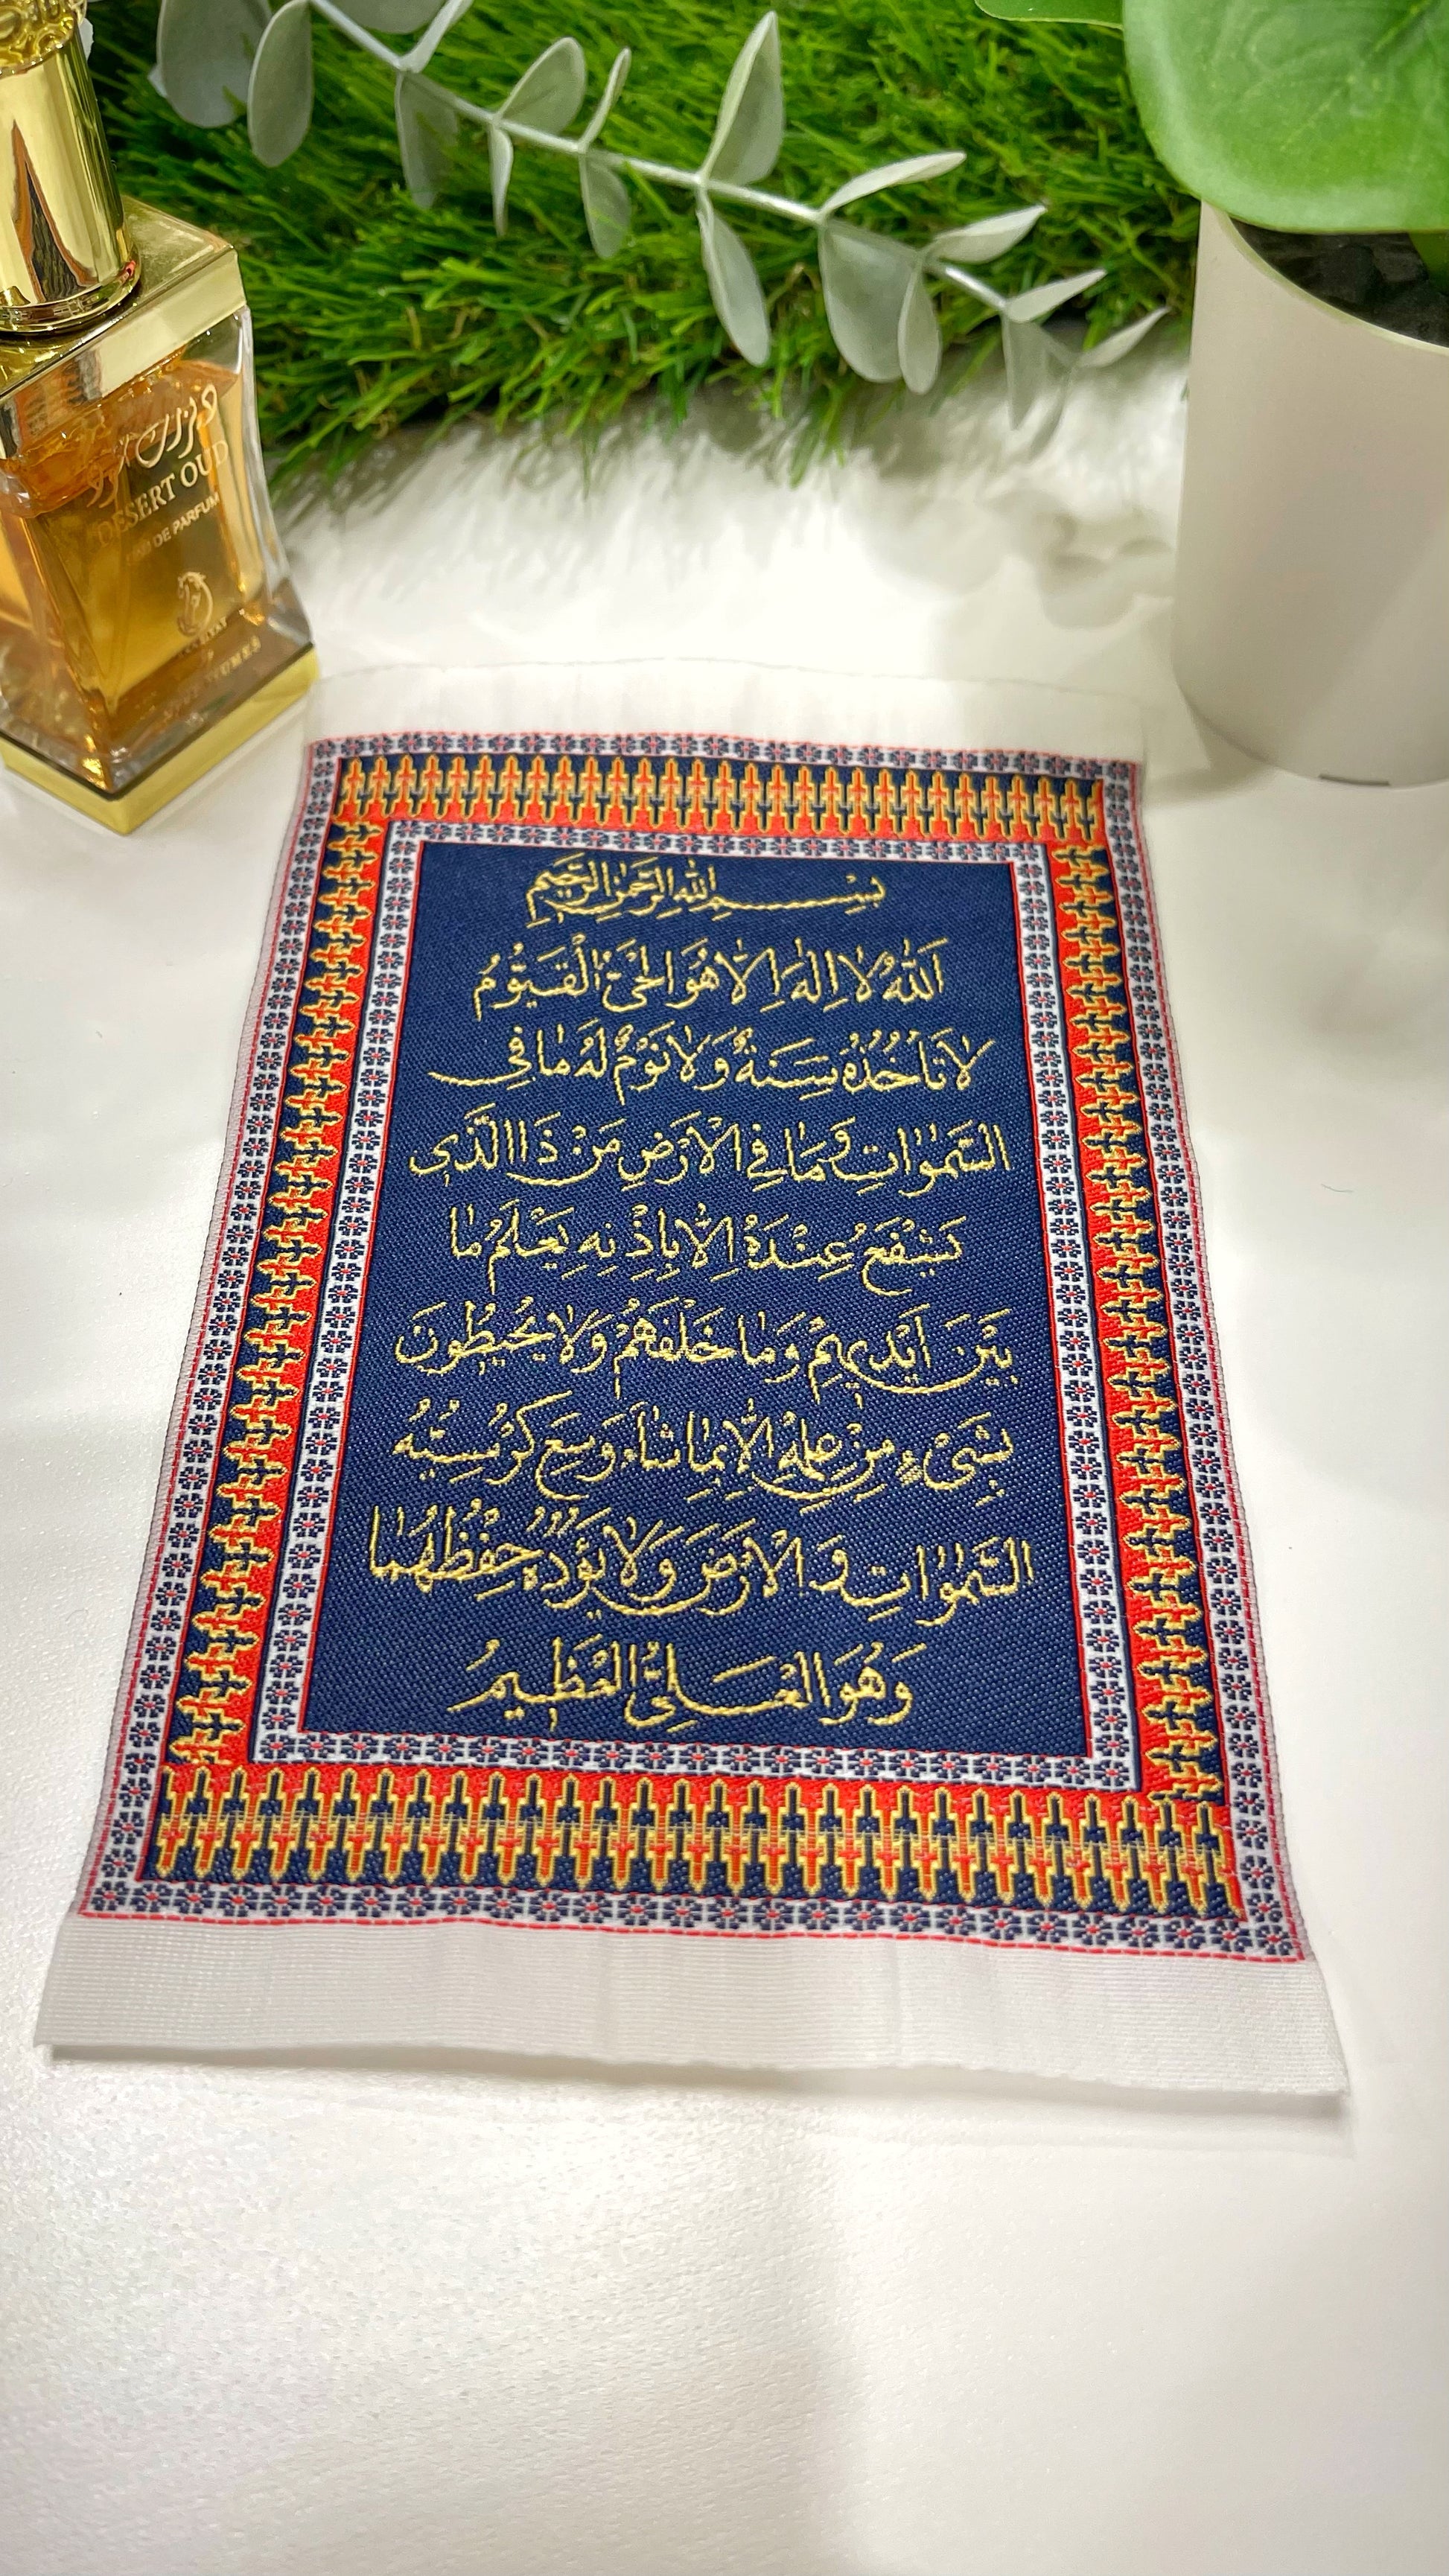 DESERT OUD
EAU DE PARFUM
بِسْمِ اللهِ الرَّحْمٰنِ الرَّحِيمِ
اَللّٰهُ لَا اِلٰهَ اِلَّا هُوَ الْحَيُّ الْقَيُّومُ
لَا تَأْخُذُهُ سِنَةٌ وَلَا نَوْمٌ لَهُ مَا فِي
السَّمٰوَاتِ وَمَا فِي الْاَرْضِ مَنْ ذَا الَّذِي
يَشْفَعُ عِنْدَهُ اِلَّا بِاِذْنِهِ يَعْلَمُ مَا
بَيْنَ اَيْدِيهِمْ وَمَا خَلْفَهُمْ وَلَا يُحِيطُونَ
بِشَيْءٍ مِنْ عِلْمِهِ اِلَّا بِمَا شَاءَ وَسِعَ كُرْسِيُّهُ
السَّمٰوَاتِ وَالْاَرْضَ وَلَا يَؤُدُهُ حِفْظُهُمَا
وَهُوَ الْعَلِيُّ الْعَظِيمُ